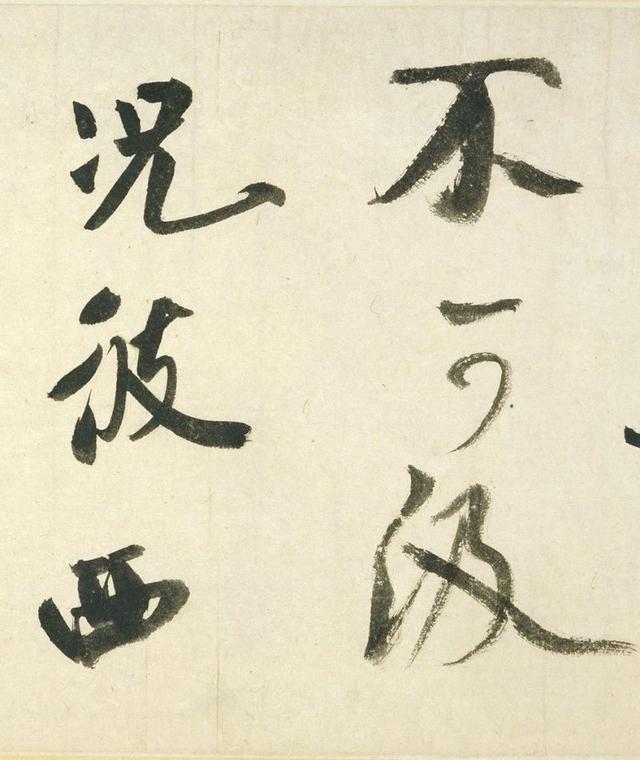 不可汲
況彼西